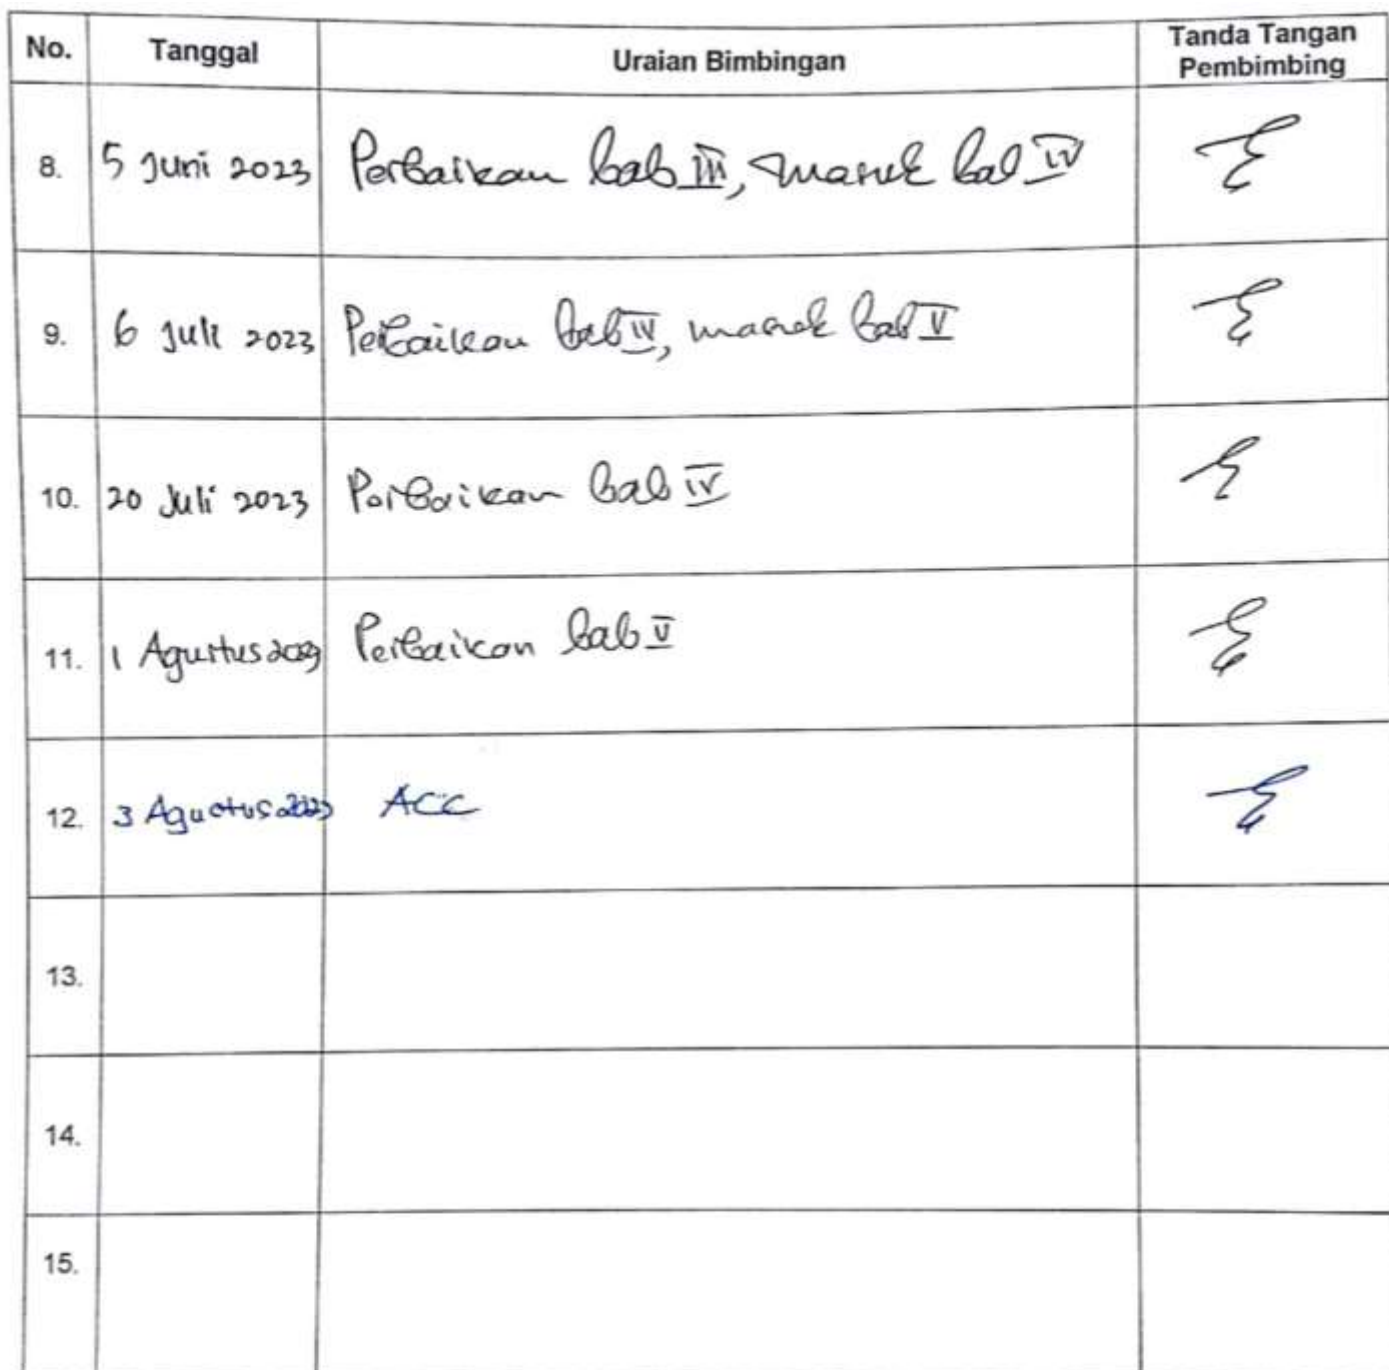 No. Tanggal Uraian Bimbingan Tanda Tangan
Pembimbing
8. 5 Juni 2023 Perbaikan bab III, masuk bab IV
9. 6 Juli 2023 Perbaikan bab IV, masuk bab V
10. 20 Juli 2023 Perbaikan bab IV
11. 1 Agustus 2023 Perbaikan bab V
12. 3 Agustus 2023 ACC
13.
14.
15.